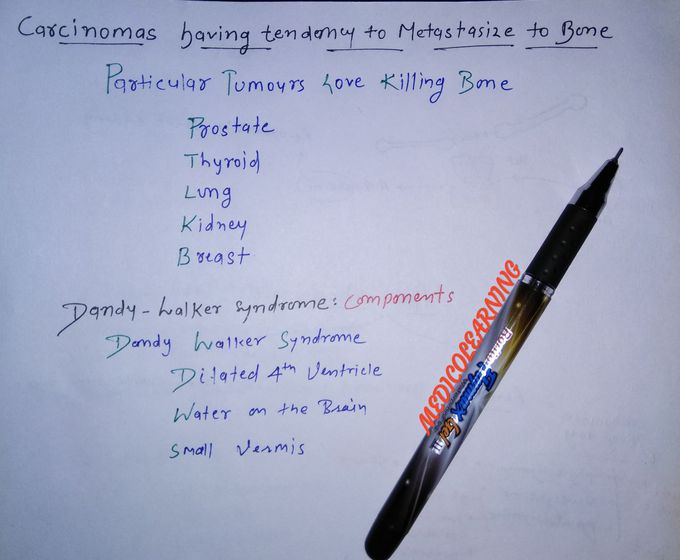 Carcinomas having tendency to Metastasize to Bone
Particular Tumours Love Killing Bone
Prostate
Thyroid
Lung
Kidney
Breast
Dandy-Walker Syndrome: Components
Dandy Walker Syndrome
Dilated 4th Ventricle
Water on the Brain
Small Vermis
MEDICOLEARNING